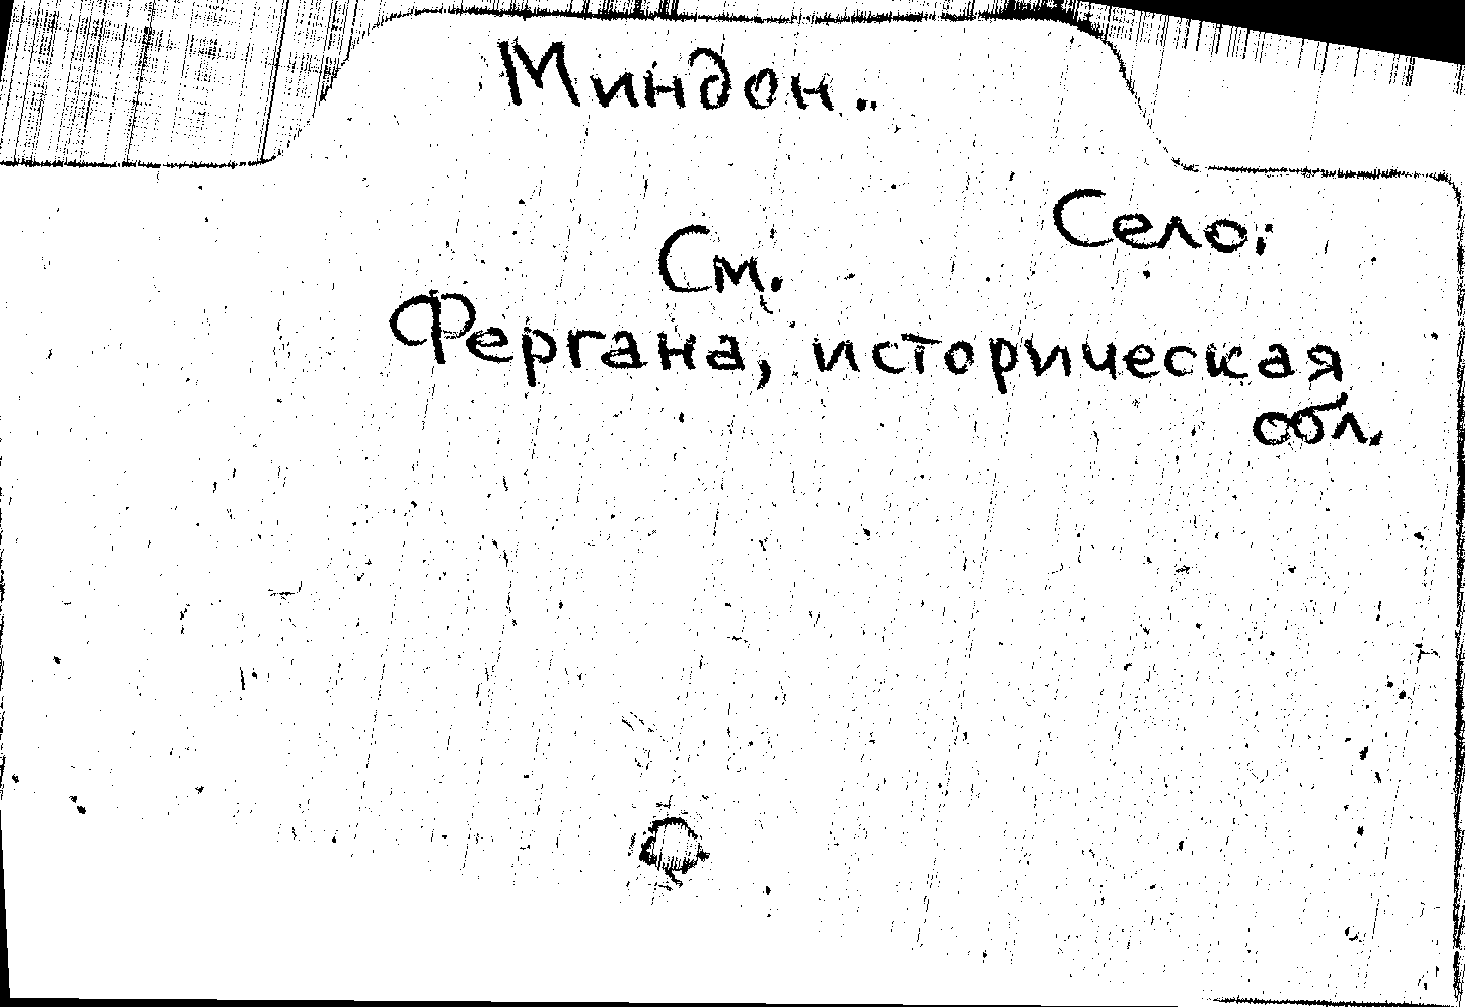 Миндон..
Село.
См.
Фергана, историческая
обл.